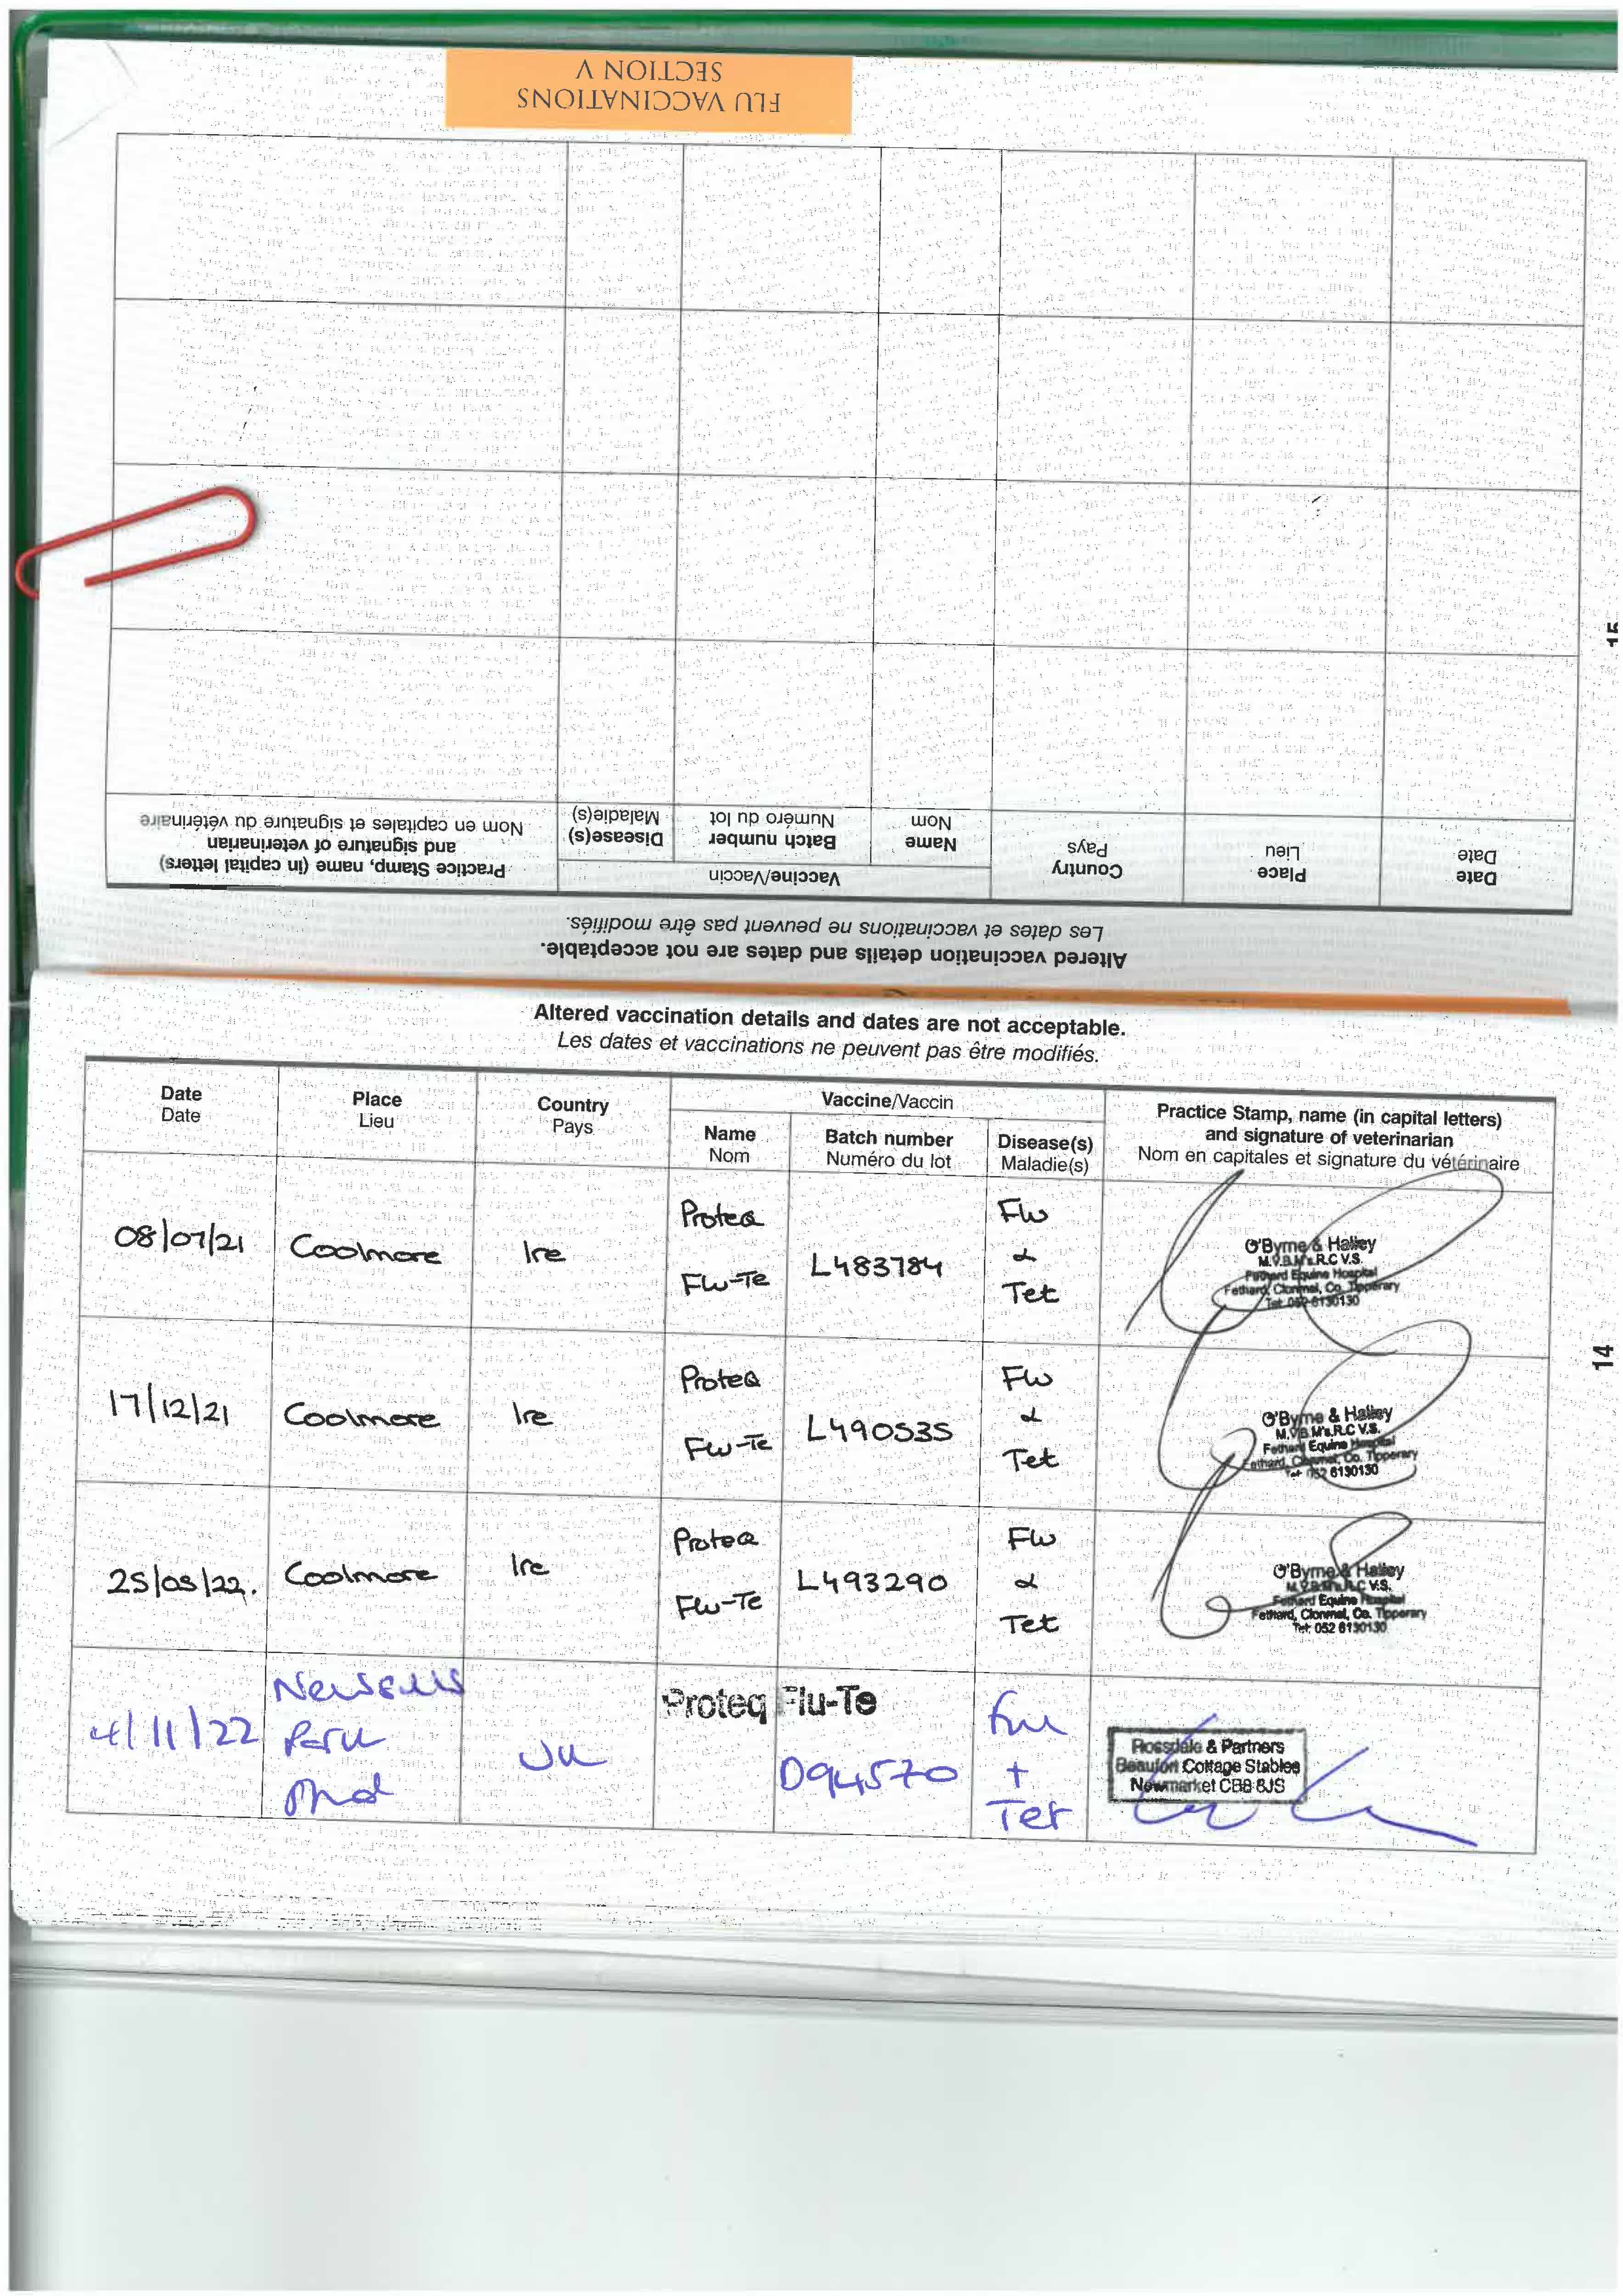 FLU VACCINATIONS
SECTION V
Altered vaccination details and dates are not acceptable.
Les dates et vaccinations ne peuvent pas être modifiés.
Date
Date
Place
Lieu
Country
Pays
Vaccine/Vaccin
Name
Nom
Batch number
Numéro du lot
Disease(s)
Maladie(s)
Practice Stamp, name (in capital letters)
and signature of veterinarian
Nom en capitales et signature du vétérinaire
15
Altered vaccination details and dates are not acceptable.
Les dates et vaccinations ne peuvent pas être modifiés.
Date
Date
Place
Lieu
Country
Pays
Vaccine/Vaccin
Name
Nom
Batch number
Numéro du lot
Disease(s)
Maladie(s)
Practice Stamp, name (in capital letters)
and signature of veterinarian
Nom en capitales et signature du vétérinaire
08/07/21
Coolmore
Ire
Proteq
Flu-Te
L483784
Flu
&
Tet
O'Byrne & Halley
M.V.B. M's.R.C.V.S.
Fethard Equine Hospital
Fethard, Clonmel, Co. Tipperary
Tel: 052 6130130
17/12/21
Coolmore
Ire
Proteq
Flu-Te
L490535
Flu
&
Tet
O'Byrne & Halley
M.V.B. M's.R.C.V.S.
Fethard Equine Hospital
Fethard, Clonmel, Co. Tipperary
Tel: 052 6130130
25/05/22.
Coolmore
Ire
Proteq
Flu-Te
L493290
Flu
&
Tet
O'Byrne & Halley
M.V.B. M's.R.C.V.S.
Fethard Equine Hospital
Fethard, Clonmel, Co. Tipperary
Tel: 052 6130130
4/11/22
Newsells
Park
Stud
UK
Proteq Flu-Te
D94570
Flu
+
Tet
Rossdale & Partners
Beaufort Cottage Stables
Newmarket CB8 8JS
14